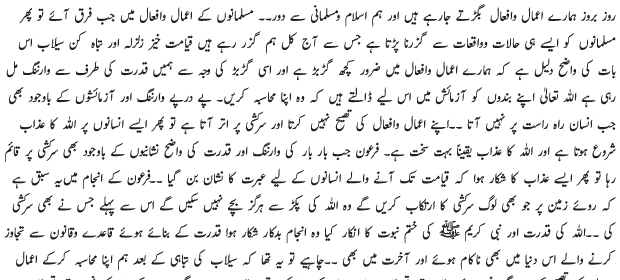 روز بروز ہمارے اعمال وافعال بگڑتے جارہے ہیں اور ہم اسلام ومسلمانی سے دور۔۔ مسلمانوں کے اعمال وافعال میں جب فرق آئے تو پھر
مسلمانوں کو ایسے ہی حالات وواقعات سے گزرنا پڑتا ہے جس سے آج کل ہم گزر رہے ہیں قیامت خیز زلزلہ اور تباہ کن سیلاب اس
بات کی واضح دلیل ہے کہ ہمارے اعمال وافعال میں ضرور کچھ گڑبڑ ہے اور اسی گڑبڑ کی وجہ سے ہمیں قدرت کی طرف سے وارننگ مل
رہی ہے اللہ تعالیٰ اپنے بندوں کو آزمائش میں اس لیے ڈالتے ہیں کہ وہ اپنا محاسبہ کریں۔ پے درپے وارننگ اور آزمائشوں کے باوجود بھی
جب انسان راہ راست پر نہیں آتا ۔۔اپنے اعمال وافعال کی تصحیح نہیں کرتا اور سرکشی پر اتر آتا ہے تو پھر ایسے انسانوں پر اللہ کا عذاب
شروع ہوتا ہے اور اللہ کا عذاب یقینا بہت سخت ہے۔ فرعون جب بار بار کی وارننگ اور قدرت کی واضح نشانیوں کے باوجود بھی سرکشی پر قائم
رہا تو پھر ایسے عذاب کا شکار ہوا کہ قیامت تک آنے والے انسانوں کے لیے عبرت کا نشان بن گیا ۔۔فرعون کے انجام میں یہ سبق ہے
کہ روئے زمین پر جو بھی لوگ سرکشی کا ارتکاب کریں گے وہ اللہ کی پکڑ سے ہرگز بچے نہیں سکیں گے اس سے پہلے جس نے بھی سرکشی
کی ۔۔اللہ کی قدرت اور نبی کریم ﷺ کی ختم نبوت کا انکار کیا وہ انجام بدکار شکار ہوا قدرت کے بنائے ہوئے قاعدے وقانون سے تجاوز
کرنے والے اس دنیا میں بھی ناکام ہوئے اور آخرت میں بھی ۔۔چاہیے تو یہ تھا کہ سیلاب کی تباہی کے بعد ہم اپنا محاسبہ کرکے اعمال